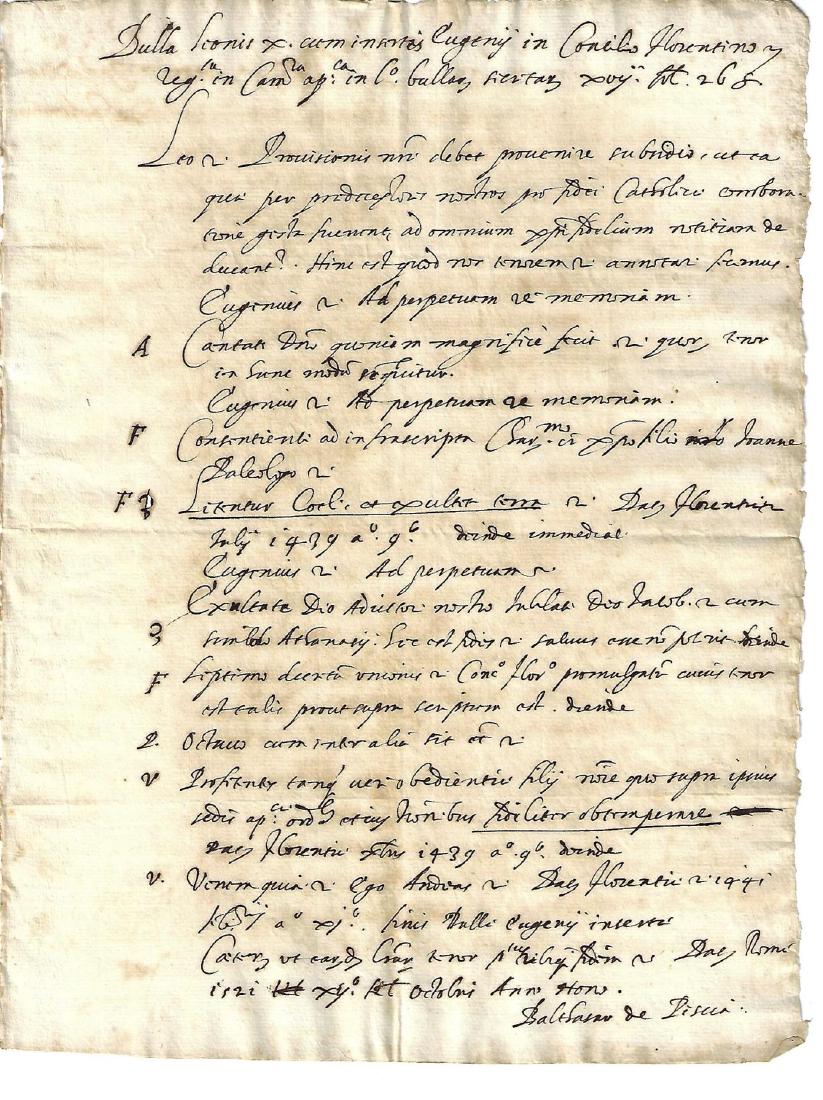 Bulla Leonis X. cum insertis Eugenij in Concilio Florentino
reg.ta in Cam.ra ap.ca in l.o bullar, secretar, xvij. fol. 268.
Leo 2. Provisionis nrē debet provenire subsidio, ut ea
que per predecessores nostros pro fidei Catholice corrobora-
tione gesta fuerunt, ad omnium xpī fidelium notitiam de
ducant.r Hinc est quod nos tenorem 2 annotari fecimus.
Eugenius 2. Ad perpetuam rē memoriam.
A Cantate Dnō quoniam magnificè fecit 2. quor, tenor
in hunc modū sequitur.
Eugenius 2. Ad perpetuam rē memoriam.
F Consentienti ad infrascripta Char.mo in xpō filio nrō Joanne
Paleologo 2.
F Letentur Coeli, et exultet terra 2. Dat, Florentie
Julij 1439 a.o 9.o deinde immediate
Eugenius 2. Ad perpetuam
Exultate Dēo Adiutori nostro Jubilate Deo Jacob. 2 cum
simbolo Athanasij. hec est fides 2. salvus esse nō poterit deinde
F Septimo decretū unionis 2 Conc.o Flor.o promulgatū cuius tenor
est talis prout supra scriptum est. deinde
P. Octavo cum inter alia sit 2
V Profitentes tanq̄ veri obedientie filij nōie quo supra ipsius
sedis ap.ce ord.. et iussionibus fideliter obtemperare
Dat, Florentie xbris 1439 a.o 9.o deinde
V. Verum quia 2. Ego Andreas 2. Dat, Florentie 2 1441
a.o xj.o. finis Bulle Eugenij inserte
Cæter, ut eard, lrār, tenor fidem 2. Dat, Rome
1521 xij.o Octobris Anno Nono.
Balthasar de Piscia.